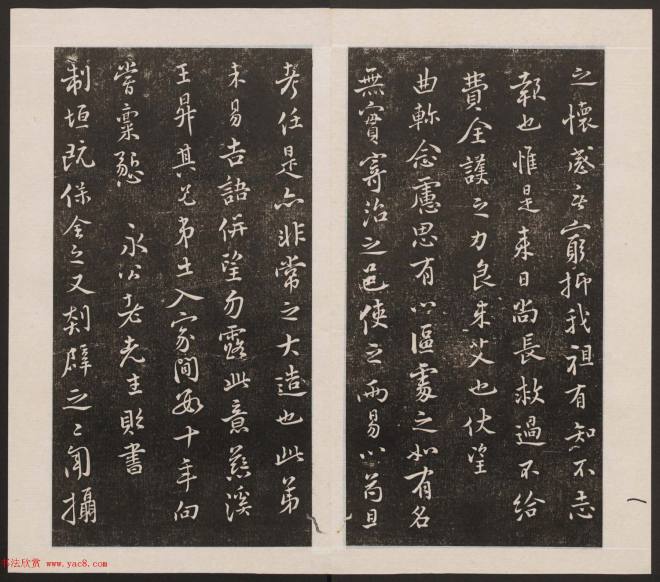 之懷感無窮抑我祖有知不忘
報也惟是來日尚長救過不給
費全護之力良未艾也伏望
曲軫念慮思有以區處之如有名
無實寄治之邑使之兩易以苟且
考任是亦非常之大造也此第
未易告語併望勿露此意慈溪
王昇其兄弟士人家間數十年向
嘗稟懇 永公老先生貽書
制垣既保全之又剡辟之之聞攝
书法欣赏 www.yac8.com